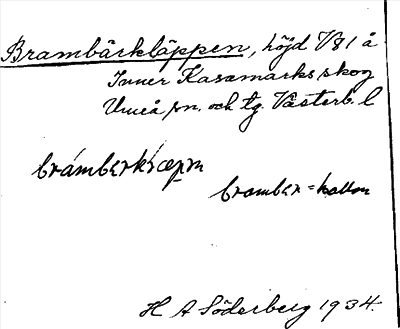 Brambärkläppen, höjd V81 å
Inner Kasamarks skog
Umeå sn. och tg. Västerb. l
brámberklæpm
bramber=kallen
H A Söderberg 1934.